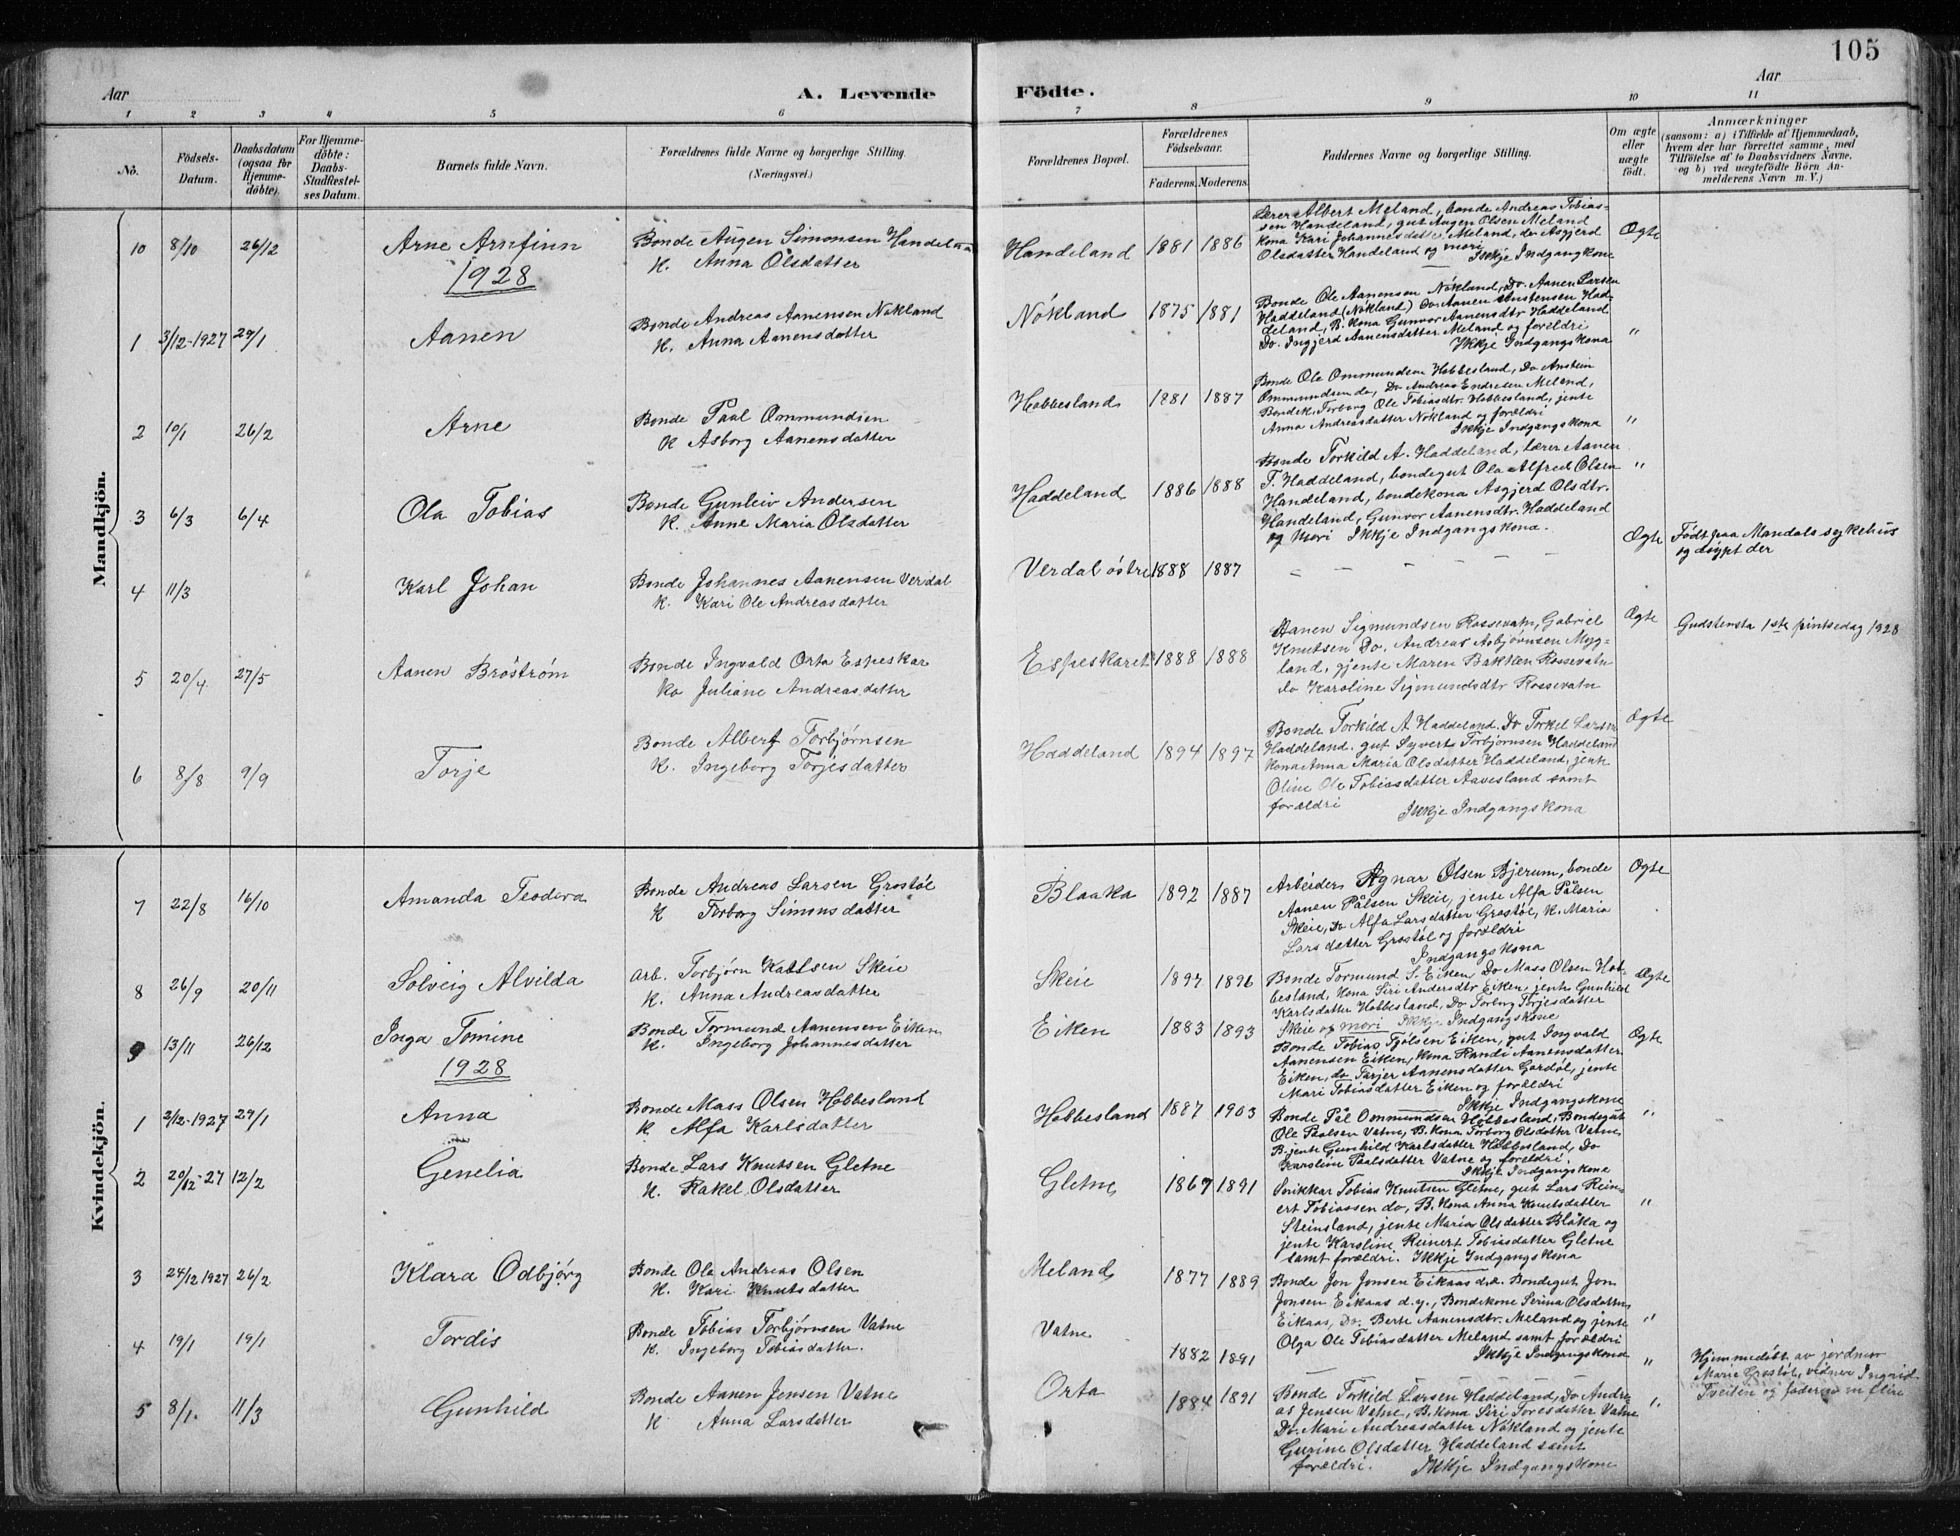 105
Aar
A. Levende
Födte.
Aar
1 2 3 4 5 6 7 8 9 10 11
No.
Födsels-
Datum.
Daabsdatum
(ogsaa for
Hjemme-
döbte).
For Hjemme-
döbte:
Daabs-
Stadfæstel-
ses Datum.
Barnets fulde Navn.
Forældrenes fulde Navne og borgerlige Stilling.
(Næringsvei.)
Forældrenes Bopæl.
Forældrenes
Födselsaar.
Faderens. Moderens.
Faddernes Navne og borgerlige Stilling.
Om ægte
eller
uægte
födt.
Anmærkninger
(saasom: a) i Tilfælde af Hjemmedaab,
hvem der har forrettet samme, med
Tilföielse af to Daabsvidners Navne,
og b) ved uægtefödte Börn An-
melderens Navn m. V.)
Mandkjön.
10 8/10 26/12 Arne Arnfinn
Bonde Augen Simonsen Handeland
K. Anna Olsdatter
Handeland 1881 1886
Lærer Albert Meland, bonde Andreas Tobias-
sen Handeland, gut Augen Olsen Meland
kona Kari Johannesdatter Meland, do Asgjerd
Olsdatter Handeland og mori
Ikkje Indgangkone
Ægte
1928
1 3/12-1927 29/1 Aanen
Bonde Andreas Aanensen Nökland
K. Anna Aanensdatter
Nökland 1875 1881
Bonde Ole Aanensen Nökland, Do. Aanen Larsen
Haddeland (Nökland) Do Aanen Austensen Had-
deland, B. kona Gunvor Aanensdtr Haddeland
Do. Ingjerd Aanensdatter Meland og foreldri
Ikkje Indgangskona
"
2 10/1 26/2 Arne
Bonde Paal Ommundsen
K Asborg Aanensdatter
Hobbesland 1881 1887
Bonde Ole Ommundsen Hobbesland, Do Anstein
Ommundsen do, Do Andreas Endresen Meland,
Bondek. Torborg Ole Tobiasdtr. Hobbesland, jente
Anna Andreasdatter Nökland og forældri
Ikkje Indgangskona
"
3 6/3 6/4 Ola Tobias
Bonde Gunleiv Andersen
K. Anne Maria Olsdatter
Haddeland 1886 1888
Bonde Torkild A. Haddeland, lærer Aanen
T. Haddeland, bondegut Ola Alfred Olsen
Handeland, bondekona Asgjerd Olsdtr.
Handeland, Gunvor Aanensdtr. Haddeland
og mori Ikkje Indgangskona.
"
4 11/3 Karl Johan
Bonde Johannes Aanensen Verdal
K. Kari Ole Andreasdatter
Verdal östre 1888 1887
– – – – –
Ægte
Födt paa Mandals sykehus
og döypt der
5 20/4. 27/5 Aanen Bröström
Bonde Ingvald Orta Espeskar
Ko Juliane Andreasdatter
Espeskaret 1888 1888
Aanen Sigmundsen Rossevatn, Gabriel
Knutsen Do. Andreas Asbjörnsen Myg-
land, gjente Maren Bakken Rossevatn
do Karoline Sigmundsdtr Rossevatn
Ægte
Gudstensta 1ste pintsedag 1928
6 8/8 9/9 Torje
Bonde Albert Torbjørnsen
K. Ingeborg Torjesdatter
Haddeland 1894 1897
Bonde Torkild A Haddeland. Do Torkel Larsen
Haddeland. gut Syvert Torbjørnsen Haddeland
Kona Anna Maria Olsdatter Haddeland, jente
Oline Ole Tobiasdatter Aavesland samt
forældri Ikkje Indgangskona
Ægte
Kvindekjön.
7 22/8 16/10 Amanda Teodora
Bonde Andreas Larsen Grostöl
K Torborg Simonsdatter
Blaaka 1892 1887
Arbeider Agnar Olsen Bjerum, bonde
Aanen Pålsen Skeie, jente Alfa Pålsen
Skeie, Do Alfa Larsdatter Grostöl, K. Maria
Larsdatter Grostöl og forældri
Indgangskona
Ægte
8 26/9 20/11 Solveig Alvilda
Arb. Torbjörn Kallsen Skeie
K. Anna Andreasdatter
Skeie 1897 1896
Bonde Tormund S. Eiken, Do Mass Olsen Hob-
besland, Kona Siri Andersdtr Eiken, jente Gunhild
Karlsdatter Hobbesland, Do Torbrg Torjesdatter
Skeie og mori Ikkje Indgangskone
Ægte
9 13/11 26/12 Inga Tomine
Bonde Tormund Aanensen Eiken
K. Ingeborg Johannesdatter
Eiken 1883 1893
Bonde Tobias Tjölsen Eiken, gut Ingvald
Aanensen Eiken, Kona Randi Aanensdatter
Eiken, do Tarjer Aanensdatter Gordöl, jente
Mari Tobiasdatter Eiken og forældri
Ikkje Indgangskone
Ægte
1928
1 2/12-1927 29/1 Anna
Bonde Mass Olsen Hobbesland
K. Alfa Karlsdatter
Hobbesland 1887 1903
Bonde Pål Ommundsen Hobbesland, Bondegut
Ole Paalsen Vatne, B. kona Torborg Olsdatter Vatne,
B.jente Gunhild Karlsdatter Hobbesland, Do
Karoline Paalsdatter Vatne og foreldri,
Ikkje Indgangskone
"
2 20/12-27 12/2 Genelia
Bonde Lars Knutsen Gletne
K. Rakel Olsdatter
Gletne 1867 1891
Snikkar Tobias Knutsen Gletne, gut Lars Rein-
ert Tobiassen do, B. Kona Anna Knutsdatter
Steinsland, jente Maria Olsdatter Blåka og
jente Karoline Reinert Tobiasdatter Gletne
samt forældri. Ikkje Indgangskona
"
3 24/12 1927 26/2 Klara Odbjörg
Bonde Ola Andreas Olsen
K. Kari Knutsdatter
Meland 1877 1889
Bonde Jon Jonsen Eikaas d.æ. Bondegut Jon
Jonsen Eikaas d.y., Bondekone Serina Olsdatter
Eikaas, Do. Berte Aanensdtr. Meland og jente
Olga Ole Tobiasdatter Meland samt forældri
Ikkje Indgangskona
"
4 19/1 19/1 Tordis
Bonde Tobias Torbjörnsen Vatne
K. Ingeborg Tobiasdatter.
Vatne 1882 1891
"
Hjemmedöbt av jordmor
Marie Grostöl, vidner Ingvid
Tveiten og faderen
5 8/1. 11/3 Gunhild
Bonde Aanen Jensen Vatne
K Anna Larsdatter
Orta 1884 1891
Bonde Torkild Larsen Haddeland, Do Andre-
as Jensen Vatne, B. Kona Siri Toresdatter Vatne
Do. Mari Andreasdatter Nökland og jente
Gurine Olsdatter Haddeland samt
forældri. Ikkje Indgangskone
"